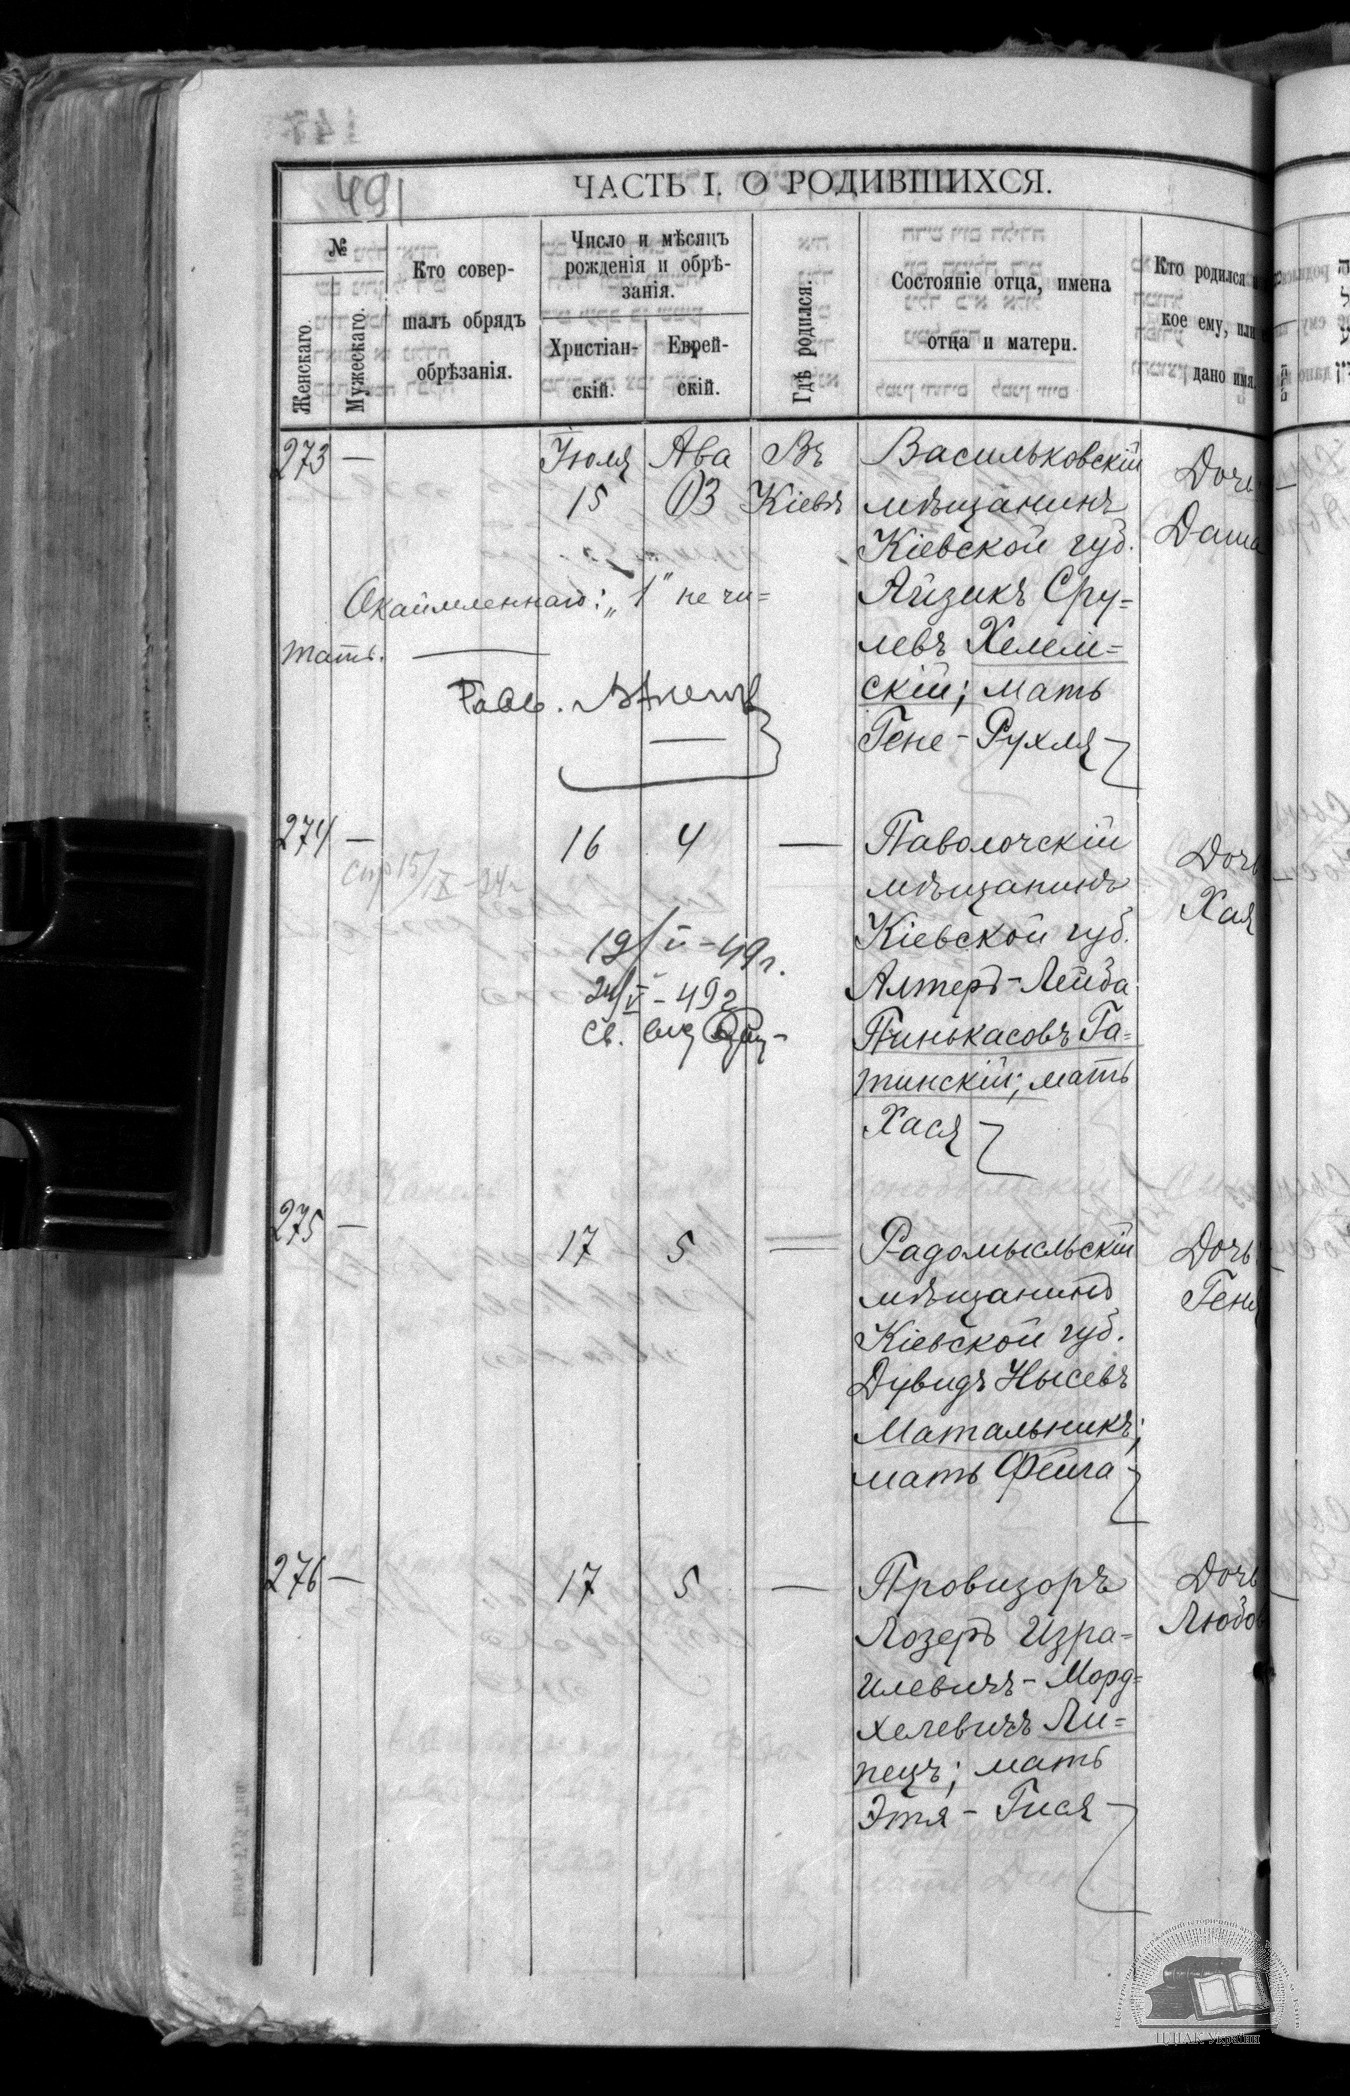 491
ЧАСТЬ I. О РОДИВШИХСЯ.
№
Женскаго.
Мужескаго.
Кто совер-
шалъ обрядъ
обрѣзанія.
Число и мѣсяцъ
рожденія и обрѣ-
занія.
Христіан-
скій.
Еврей-
скій.
Гдѣ родился.
Состояніе отца, имена
отца и матери.
Кто родился
кое ему, или
дано имя.
273 —
Іюля
15
Ава
03
Въ
Кіевѣ
Васильковскій
мѣщанинъ
Кіевской губ.
Айзикъ Сру-
левъ Хелем-
скій; мать
Гене-Рухля
Дочь
Даша
Окаймленнаго: „1" не чи-
тать. —
274 —
16
4
—
Паволочскій
мѣщанинъ
Кіевской губ.
Алтеръ-Лейба
Пинькасовъ Га-
тинскій; мать
Хася
Дочь
Хая
спр 15/IX-34г
19/V-49г.
24/V-49г
Св.
275 —
17
5
—
Радомысльскій
мѣщанинъ
Кіевской губ.
Дувидъ Нысевъ
Матальникъ;
мать Фейга
Дочь
Геня
276 —
17
5
—
Провизоръ
Лозеръ Изра-
илевичъ-Морд-
хелевичъ Ли-
пецъ; мать
Этя-Гися
Дочь
Любов
ЦДІАК України